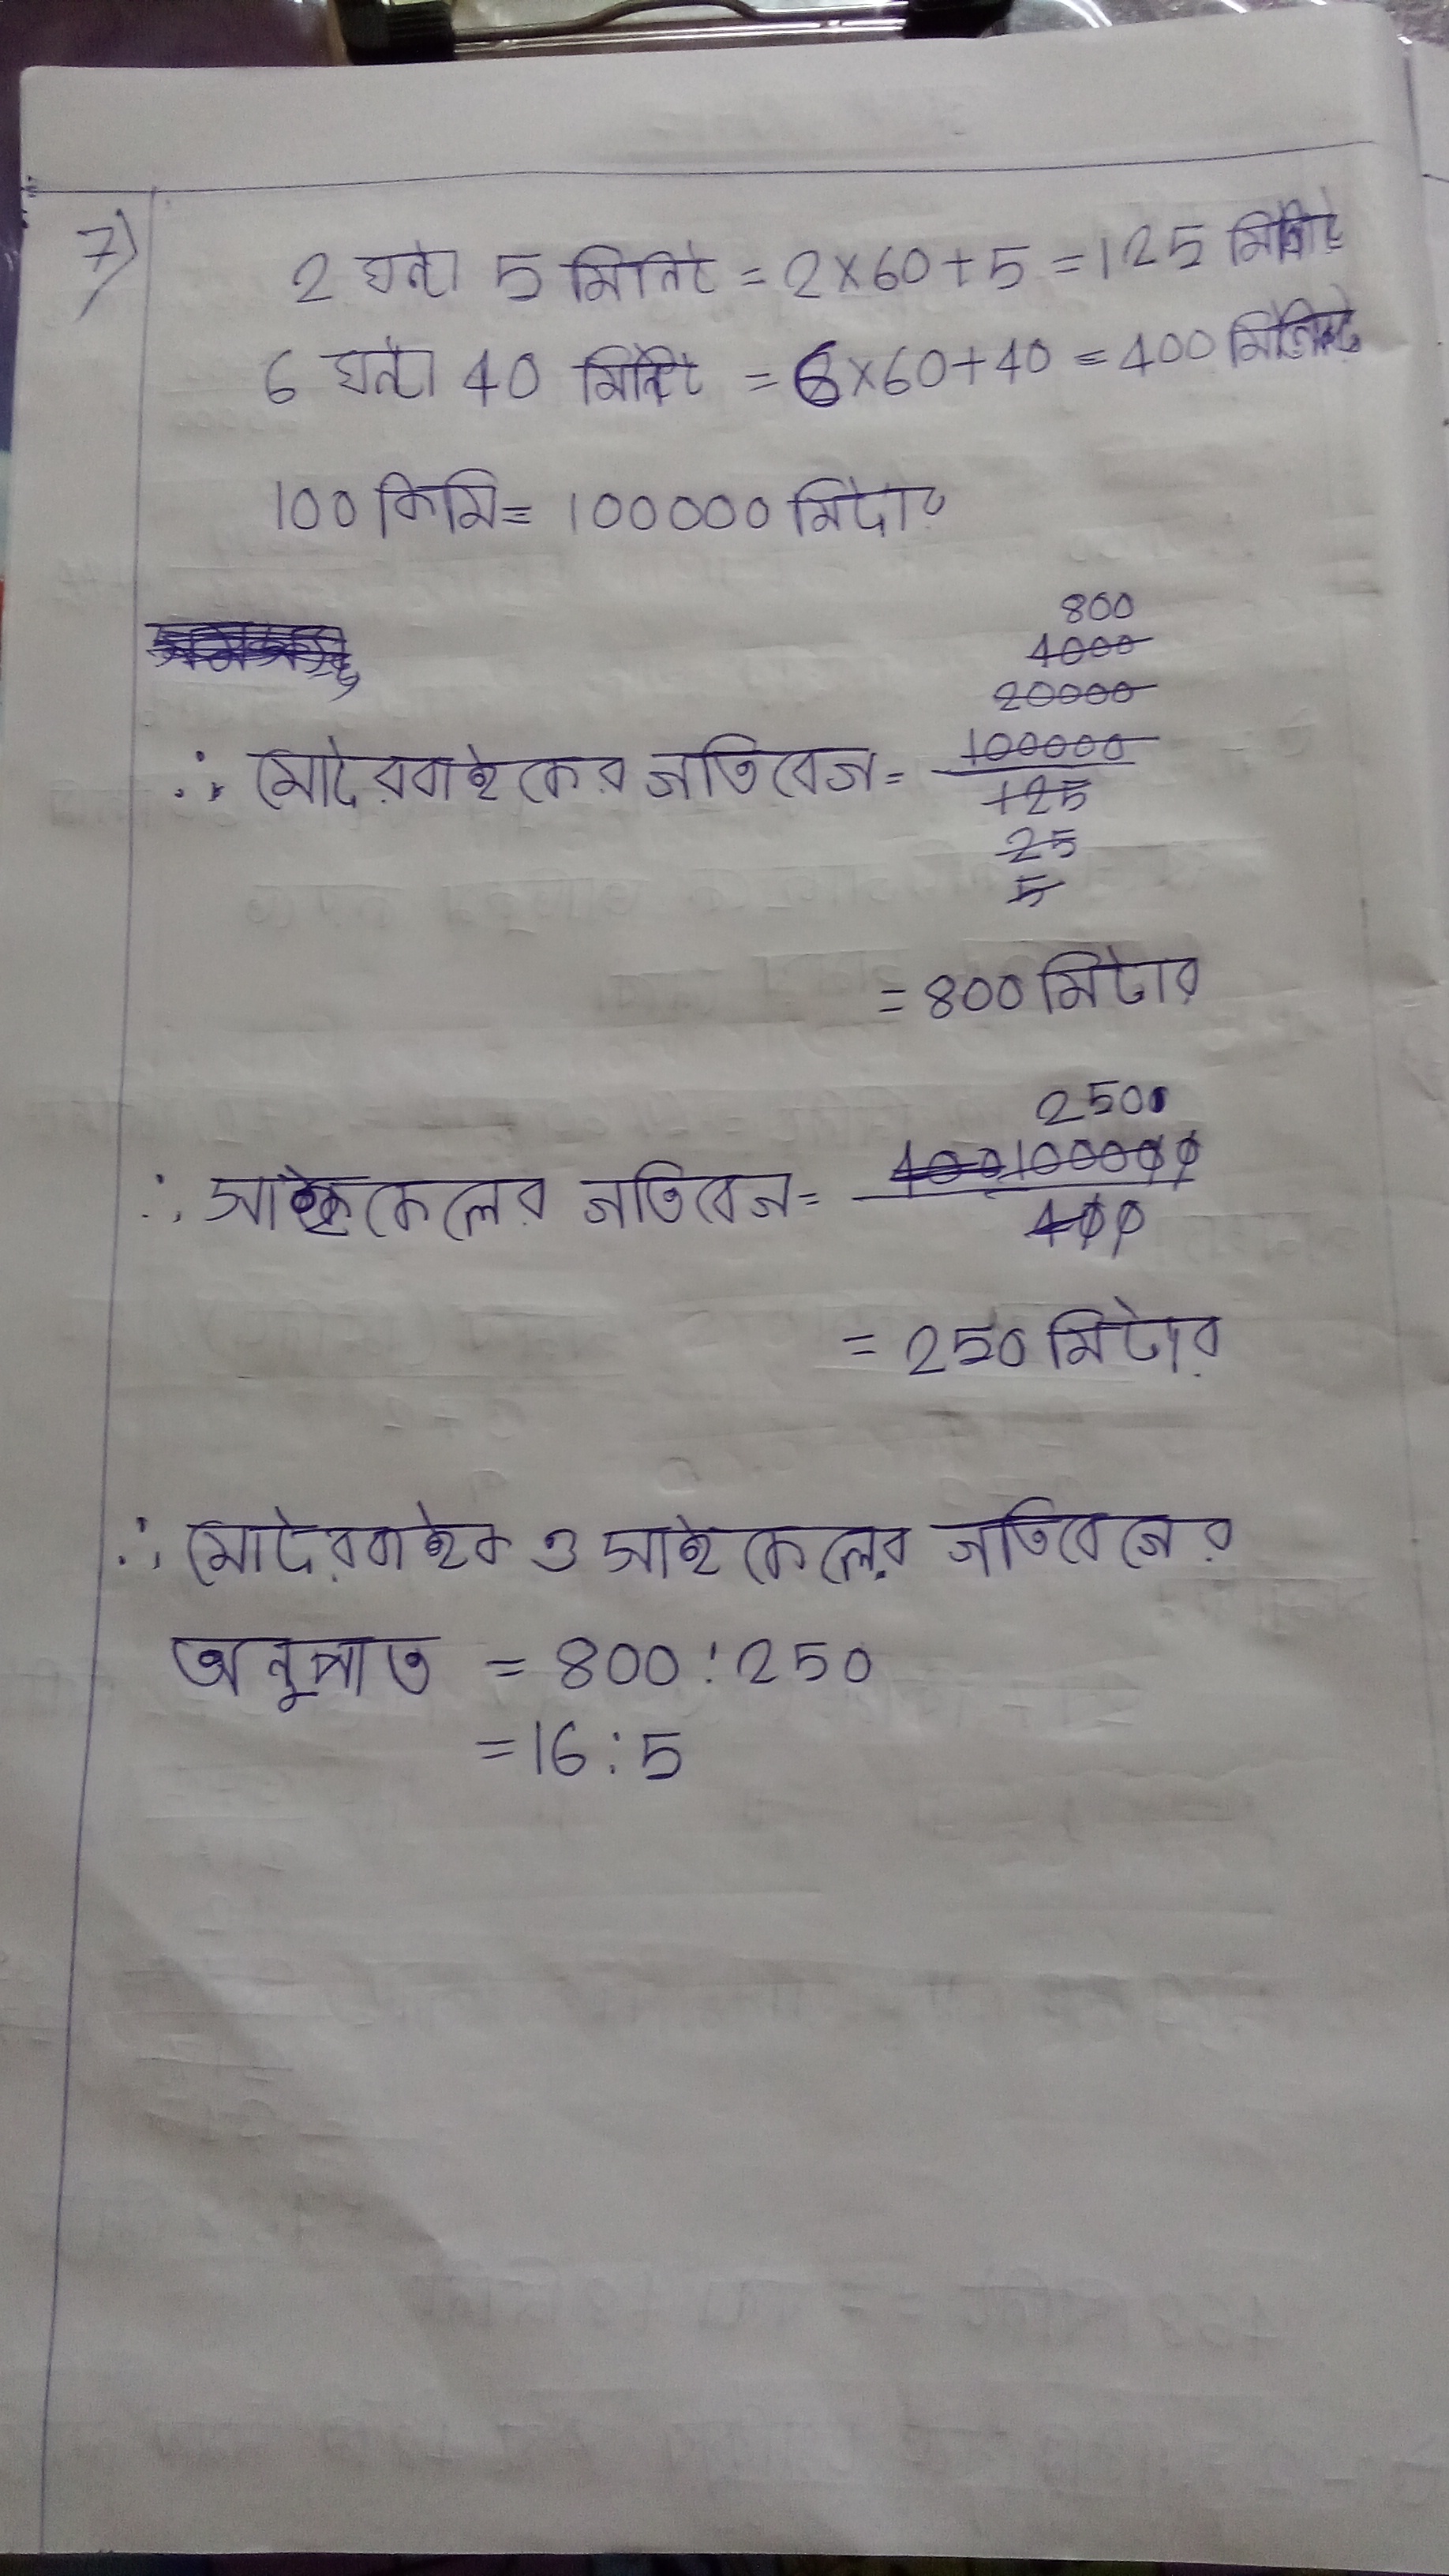 7)
2 ঘন্টা 5 মিনিট = 2×60+5 = 125 মিনিট
6 ঘন্টা 40 মিনিট = 6×60+40 = 400 মিনিট
100 কিমি = 100000 মিটার
800
4000
20000
∴ মোটরবাইকের গতিবেগ = 100000
125
25
5
= 800 মিটার
250
∴ সাইকেলের গতিবেগ = 100000
400
= 250 মিটার
∴ মোটরবাইক ও সাইকেলের গতিবেগের
অনুপাত = 800 : 250
= 16 : 5